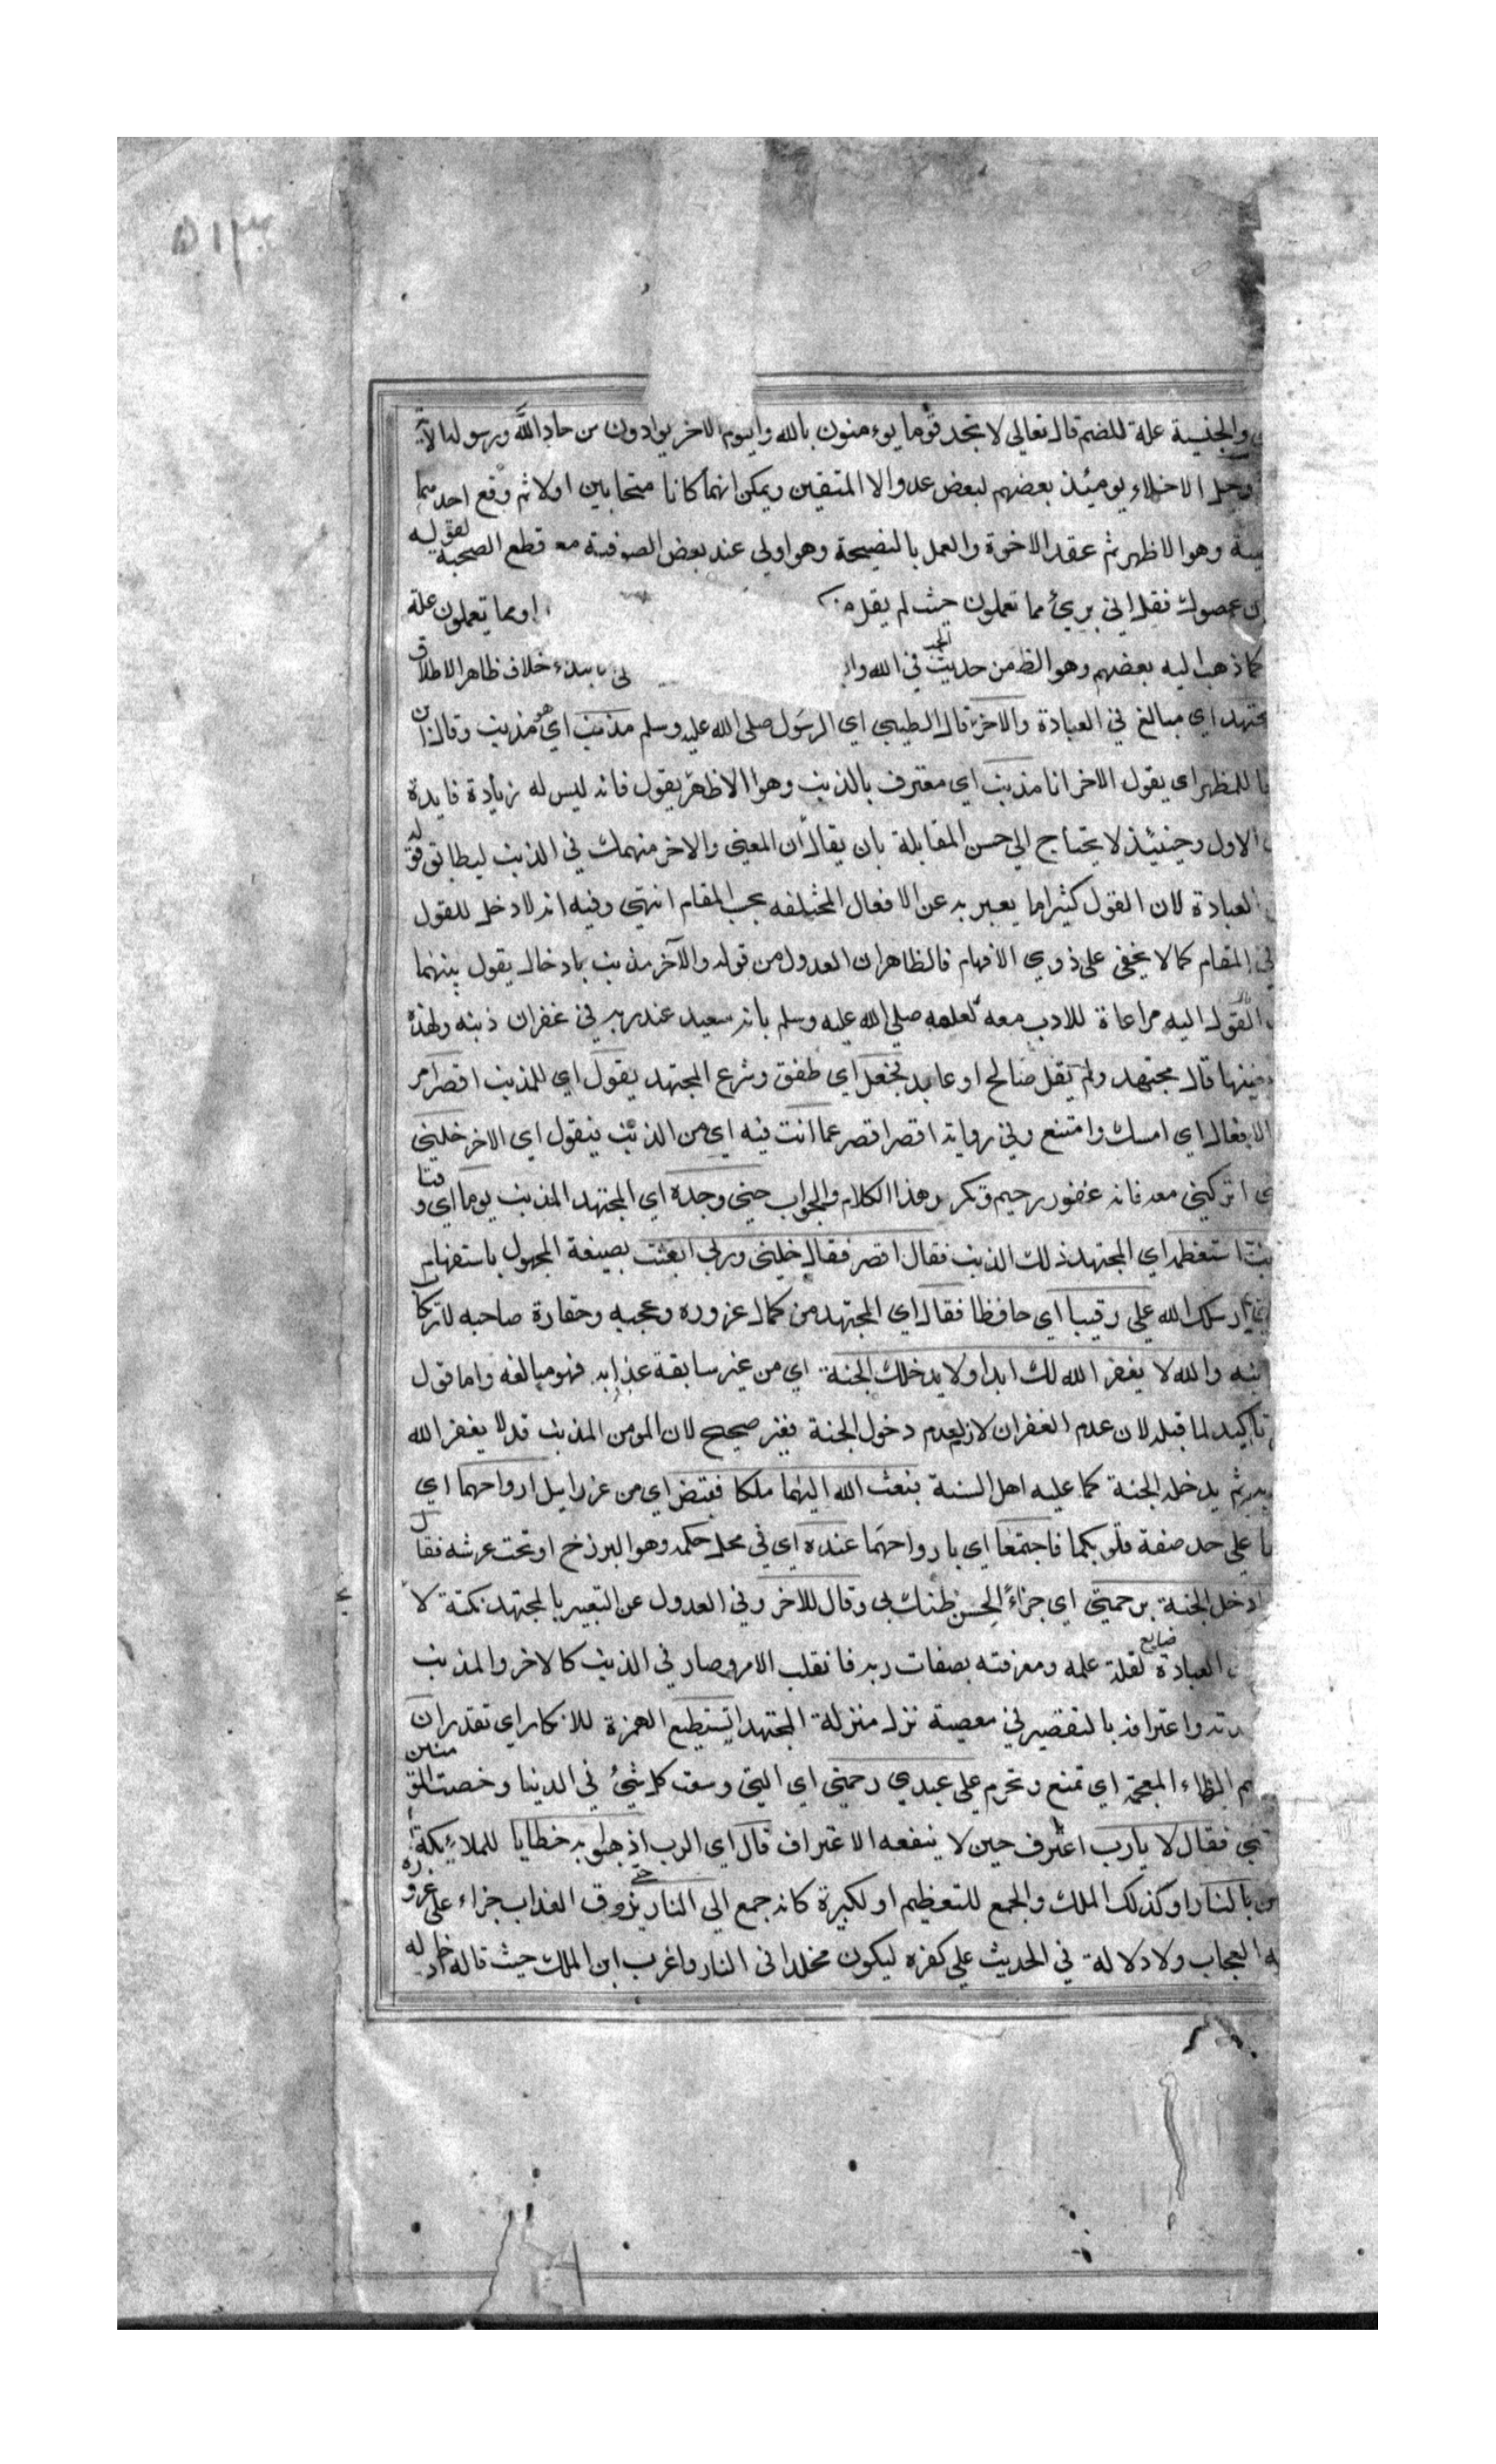 ۵۱۳
والجنسية علة للضم قال تعالى لا تجد قوما يوءمنون بالله واليوم الاخر يوادون من حاد الله ورسوله الآية
وجل الاخلاء يومئذ بعضهم لبعض عدو الا المتقين ويمكن انهما كانا متحابين اولا ثم وقع احدهما
وهو الاظهر ثم عقد الاخوة والعمل بالنصيحة وهو اولى عند بعض الصوفية مع قطع الصحبة لقوله
عصوك فقل اني بريئ مما تعملون حيث لم يقل او مما تعملون علة
كما ذهب اليه بعضهم وهو الظ من حديث الحب في الله خلاف ظاهر الاطلاق
مجتهد اي مبالغ في العبادة والاخر قال الطيبي اي الرسول صلى الله عليه وسلم مذنب اي هو مذنب وقال ان
للمظهر اي يقول الاخر انا مذنب اي معترف بالذنب وهو الاظهر يقول فانه ليس له زيادة فايدة
الاول وحينئذ لا يحتاج الى حسن المقابلة بان يقال ان المعنى والاخر منهمك في الذنب ليطابق قوله
العبادة لان القول كثيرا ما يعبر به عن الافعال المختلفه بحسب المقام انتهى وفيه انه لا دخل للقول
في المقام كما لا يخفى على ذوي الافهام فالظاهر ان العدول من قوله والآخر مذنب بادخال يقول بينهما
القول اليه مراعاة للادب معه لعلمه صلى الله عليه وسلم بانه سعيد عند ربه في غفران ذنبه ولهذه
قال مجتهد ولم يقل صالح او عابد فجعل اي طفق وشرع المجتهد يقول اي للمذنب اقصر امر
الافعال اي امسك وامتنع وفي رواية اقصر اقصر عما انت فيه اي من الذنب فيقول اي الاخر خلني
اي اتركني معه فانه غفور رحيم وتكرر هذا الكلام والجواب حتى وجده اي المجتهد المذنب يوما اي وقتا
استعظمه اي المجتهد ذلك الذنب فقال اقصر فقال خلني وربي ابعثت بصيغة المجهول باستفهام
ارسلك الله على رقيبا اي حافظا فقال اي المجتهد من كمال غروره وعجبه وحقارة صاحبه لارتكاب
والله لا يغفر الله لك ابدا ولا يدخلك الجنة اي من غير سابقة عذابه فهو مبالغه واما قول
تاكيد لما قبله لان عدم الغفران لازم لعدم دخول الجنة فغير صحيح لان المومن المذنب قد لا يغفر الله
ثم يدخله الجنة كما عليه اهل السنة فبعث الله اليهما ملكا فقبض اي من عزرايل ارواحهما اي
على حد صغة قلوبكما فاجتمعا اي بارواحهما عنده اي في محل حكمه وهو البرزخ او تحت عرشه فقال
ادخل الجنة برحمتي اي جزاء لحسن ظنك بي وقال للاخر وفي العدول عن التعبير بالمجتهد نكتة لا
العبادة ضايع لقلة علمه ومعرفته بصفات ربه فانقلب الامر وصار في الذنب كالاخر والمذنب
واعترافه بالتقصير في معصية نزل منزلة المجتهد ايستطيع الهمزة للانكار اي تقدر ان
الظاء المعجمة اي تمنع وتحرم على عبدي رحمتي اي التي وسعت كل شيئ في الدنيا وخصت للمؤمنين
فقال لا يارب اعترف حين لا ينفعه الاعتراف قال اي الرب اذهبوا به خطابا للملائكة
بالنار او كذلك الملك والجمع للتعظيم او لكبيرة كانه جمع الى النار حتى يذوق العذاب جزاء على غروره
العجاب ولا دلالة في الحديث على كفره ليكون مخلدا في النار واغرب ابن الملك حيث قال